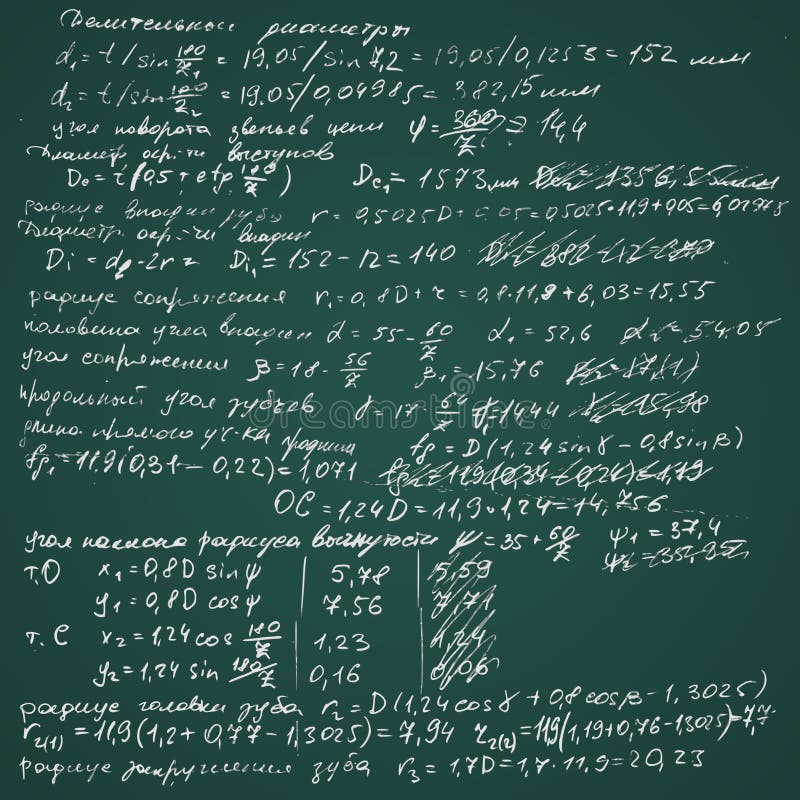 Делительные диаметры
d₁ = t / sin 180/z₁ = 19,05/sin 7,2 = 19,05/0,1253 = 152 мм
d₂ = t / sin 180/z₂ = 19.05/0,04985 = 382,15 мм
угол поворота звеньев цепи φ = 360/z = 14,4
Диаметр окр-ти выступов
De = t(0,5 + ctg 180/z) De₁ = 1573 мм
радиус впадин зуба r = 0,5025D + 0,05 = 0,5025·11,9 + 0,05 = 6,02975
Диаметр окр-ти впадин
Di = d₁ - 2r = Di₁ = 152 - 12 = 140
радиус сопряжения r₁ = 0,8D + r = 0,8·11,9 + 6,03 = 15,55
половина угла впадин α = 55 - 60/z α₁ = 52,6
угол сопряжения β = 18 - 56/z β₁ = 15,76
продольный угол зубьев γ = 17 - 64/z γ₁ = 1444
длина прямого уч-ка профиля fg = D(1,24 sin γ - 0,8 sin β)
fg₁ = 11,9(0,31 - 0,22) = 1,071
OC = 1,24D = 11,9·1,24 = 14,756
угол наклона радиуса вогнутости ψ = 35 + 60/z ψ₁ = 37,4
т.О x₁ = 0,8D sin ψ 5,78 5,59
y₁ = 0,8D cos ψ 7,56 7,71
т. С x₂ = 1,24 cos 180/z 1,23 1,24
y₂ = 1,24 sin 180/z 0,16 0,06
радиус головки зуба r₂ = D(1,24 cos γ + 0,8 cos β - 1,3025)
r₂₍₁₎ = 11,9(1,2 + 0,77 - 1,3025) = 7,94 r₂₍₂₎ = 11,9(1,19 + 0,76 - 1,3025) = 7,7
радиус закругления зуба r₃ = 1,7D = 1,7·11,9 = 20,23
dreamstime